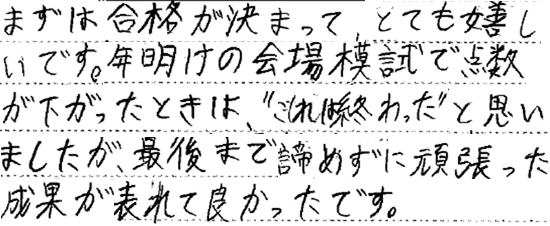 まずは合格が決まって、とても嬉し
いです。年明けの会場模試で点数
が下がったときは、"これは終わった"と思い
ましたが、最後まで諦めずに頑張った
成果が表れて良かったです。